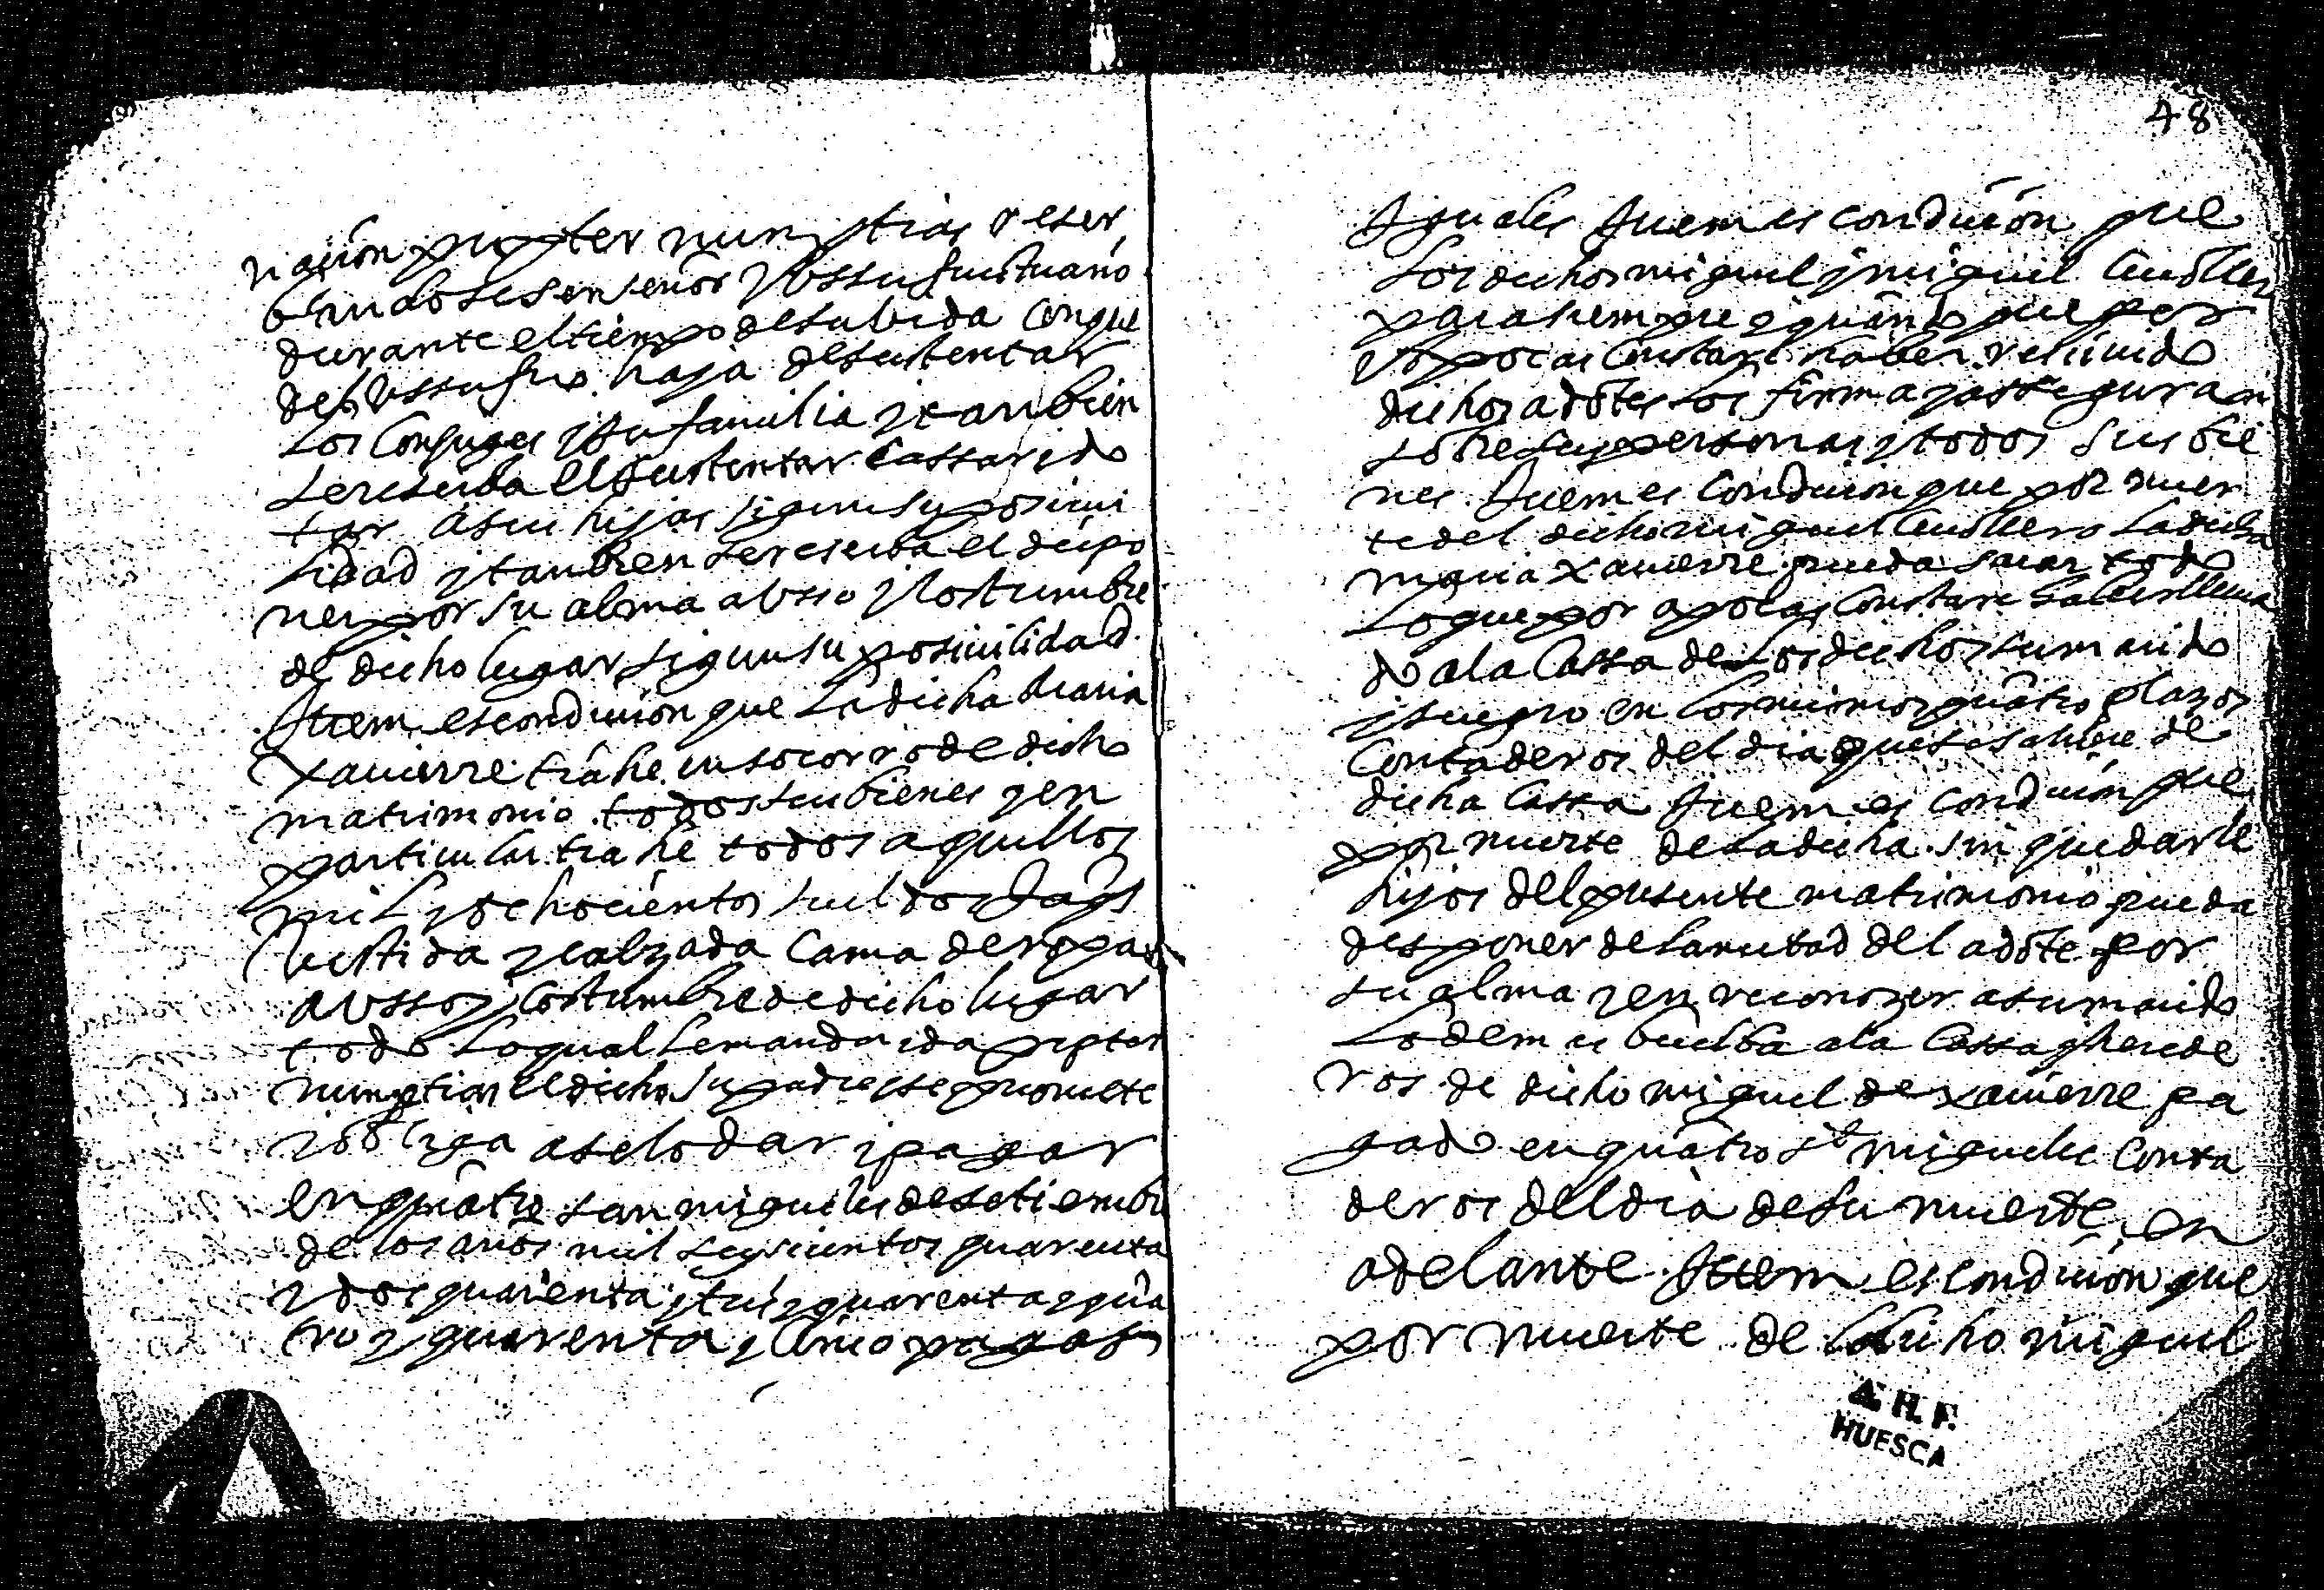 nacion propter nunptias reser
bandoses en señor y ussufructuario
durante el tiempo de su bida con que
del ussufruo haja de sustentar
Los Conjuges y su familia y tanbien
se reserba el sustentar cassar y do
tar a sus hijos sigun su posiui
lidad y tanbien se reserba el dispo
ner por su alma a usso y Costumbre
de dicho lugar sigun su posiuilidad
Ittem es condicion que La dicha Maria
xauierre trahe en socorro de dicho
matrimonio todos sus bienes y en
particular trahe todos aquellos
mil y ochocientos sueldos Jaqs
bestida y calzada Cama de ropa
a usso y Costumbre de dicho lugar
todo Lo qual Le manda y da propter
nunptias el dicho su padre y se promete
y obliga a selo dar y pagar
en quatro san migueles de setiembre
de los años mil seyscientos quarenta
y dos quarenta y tres y quarenta y qua
tro y quarenta y Cinco pagas
48
Iguales Ittem es condicion que
Los dichos miguel y miguel
para siempre y quando que por
apocas Constare haber recibido
dichos adotes Los firma y asseguran
sobre sus personas y todos sus bie
nes Ittem es Condicion que por muer
te del dicho miguel La dicha
maria xauierre pueda sacar todo
Lo que por apocas Constare haber lleua
do a la Cassa de Los dichos su marido
y suegro en Los mismos quatro plazos
Contaderos del dia que se saliere de
dicha Cassa Ittem es condicion que
por muerte de La dicha sin quedarle
hijos del presente matrimonio pueda
desponer de La mitad del adote por
su alma y en reconozer a su marido
Lo demas buelba a la Cassa y herede
ros de dicho miguel de xauierre pa
gado en quatro st migueles Conta
deros del dia de su muerte en
adelante Ittem es condicion que
por muerte de dicho miguel
A. H. P.
HUESCA